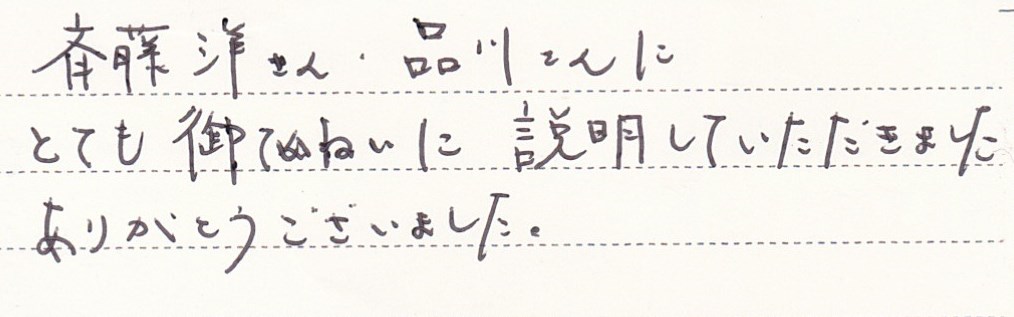 斉藤洋さん・品川さんに
とても御ていねいに説明していただきました
ありがとうございました。